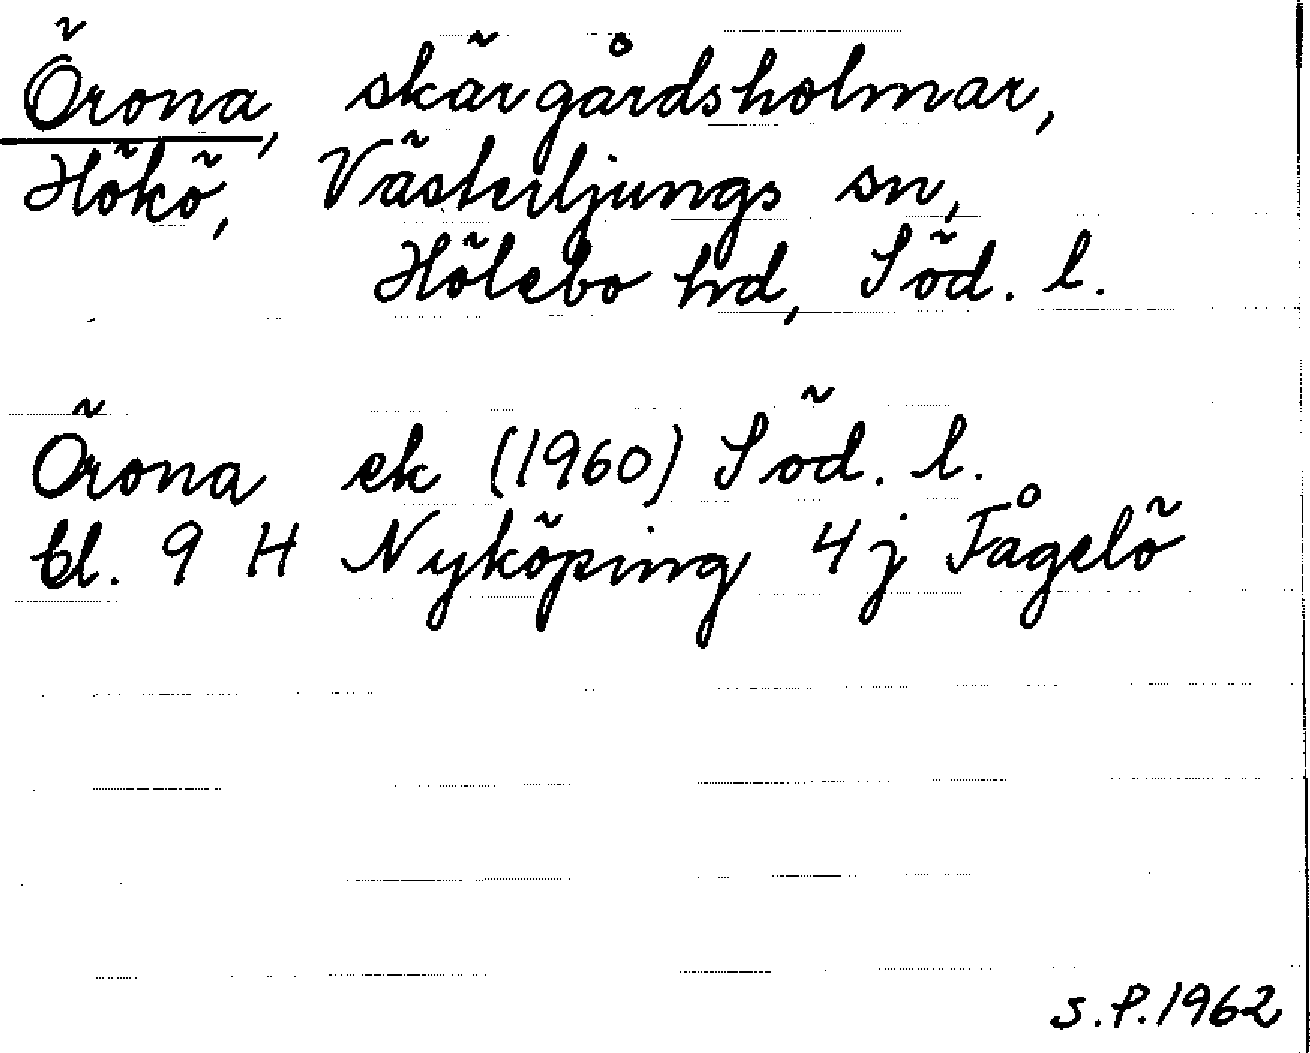 Örona, skärgårdsholmar,
Hökö, Västerljungs sn,
Hölebo hd, Söd. l.
Örona ek (1960) Söd. l.
bl. 9 H Nyköping 4j Fågelö
S.P. 1962